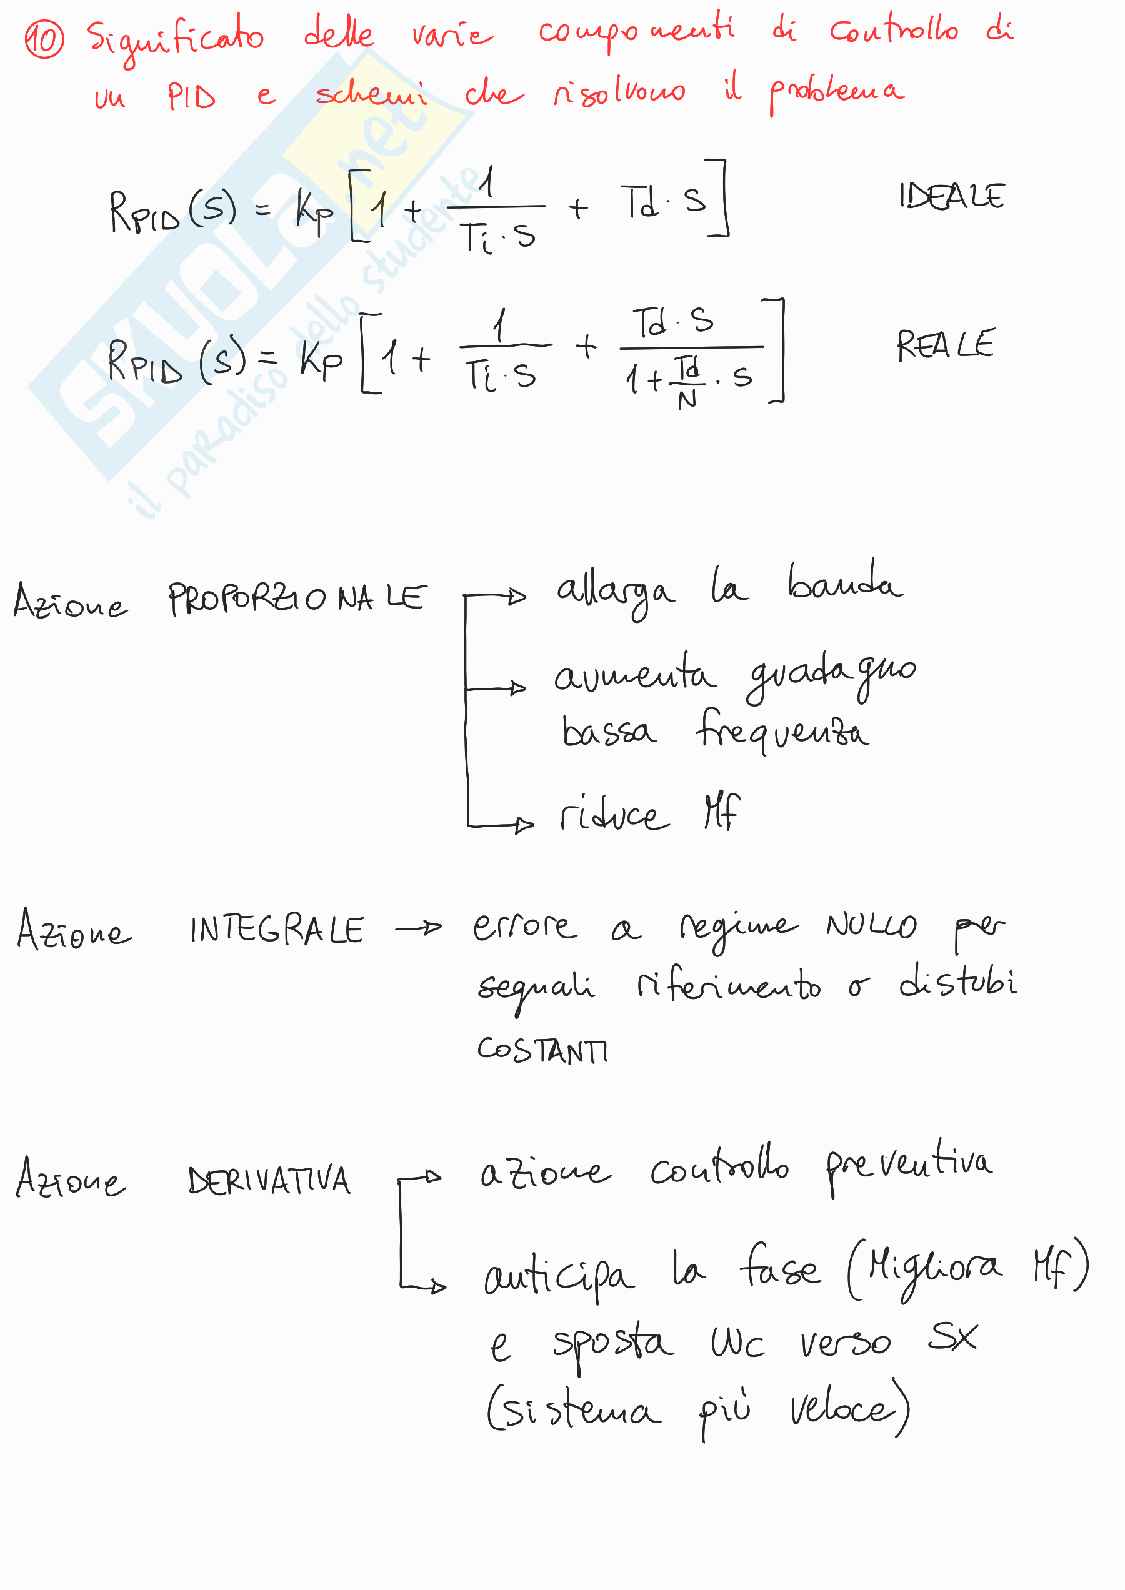 10 Significato delle varie componenti di controllo di
un PID e schemi che risolvono il problema
SKUOLA.net
il paradiso dello studente
RPID(s) = Kp [1 + 1/(Ti·s) + Td·s] IDEALE
RPID(s) = Kp [1 + 1/(Ti·s) + Td·s/(1+Td/N·s)] REALE
Azione PROPORZIONALE → allarga la banda
→ aumenta guadagno
bassa frequenza
→ riduce Mf
Azione INTEGRALE → errore a regime NULLO per
segnali riferimento o distubi
COSTANTI
Azione DERIVATIVA → azione controllo preventiva
→ anticipa la fase (Migliora Mf)
e sposta Wc verso SX
(sistema più veloce)